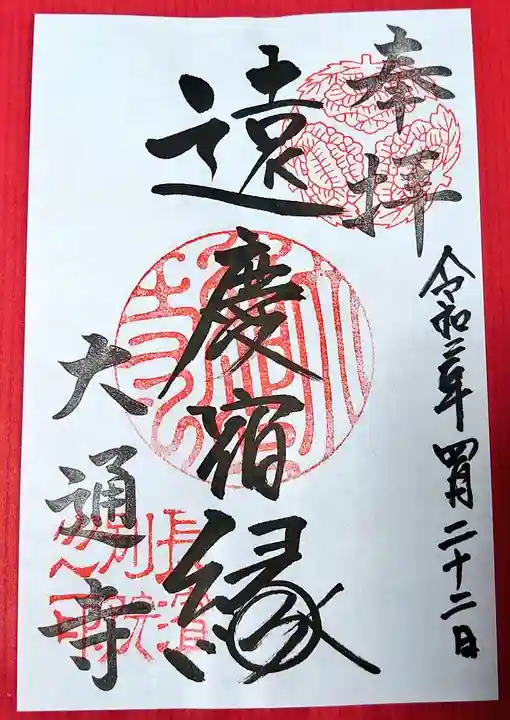 奉拝
令和三年四月二十二日
遠慶宿縁
大通寺
長濱
別院